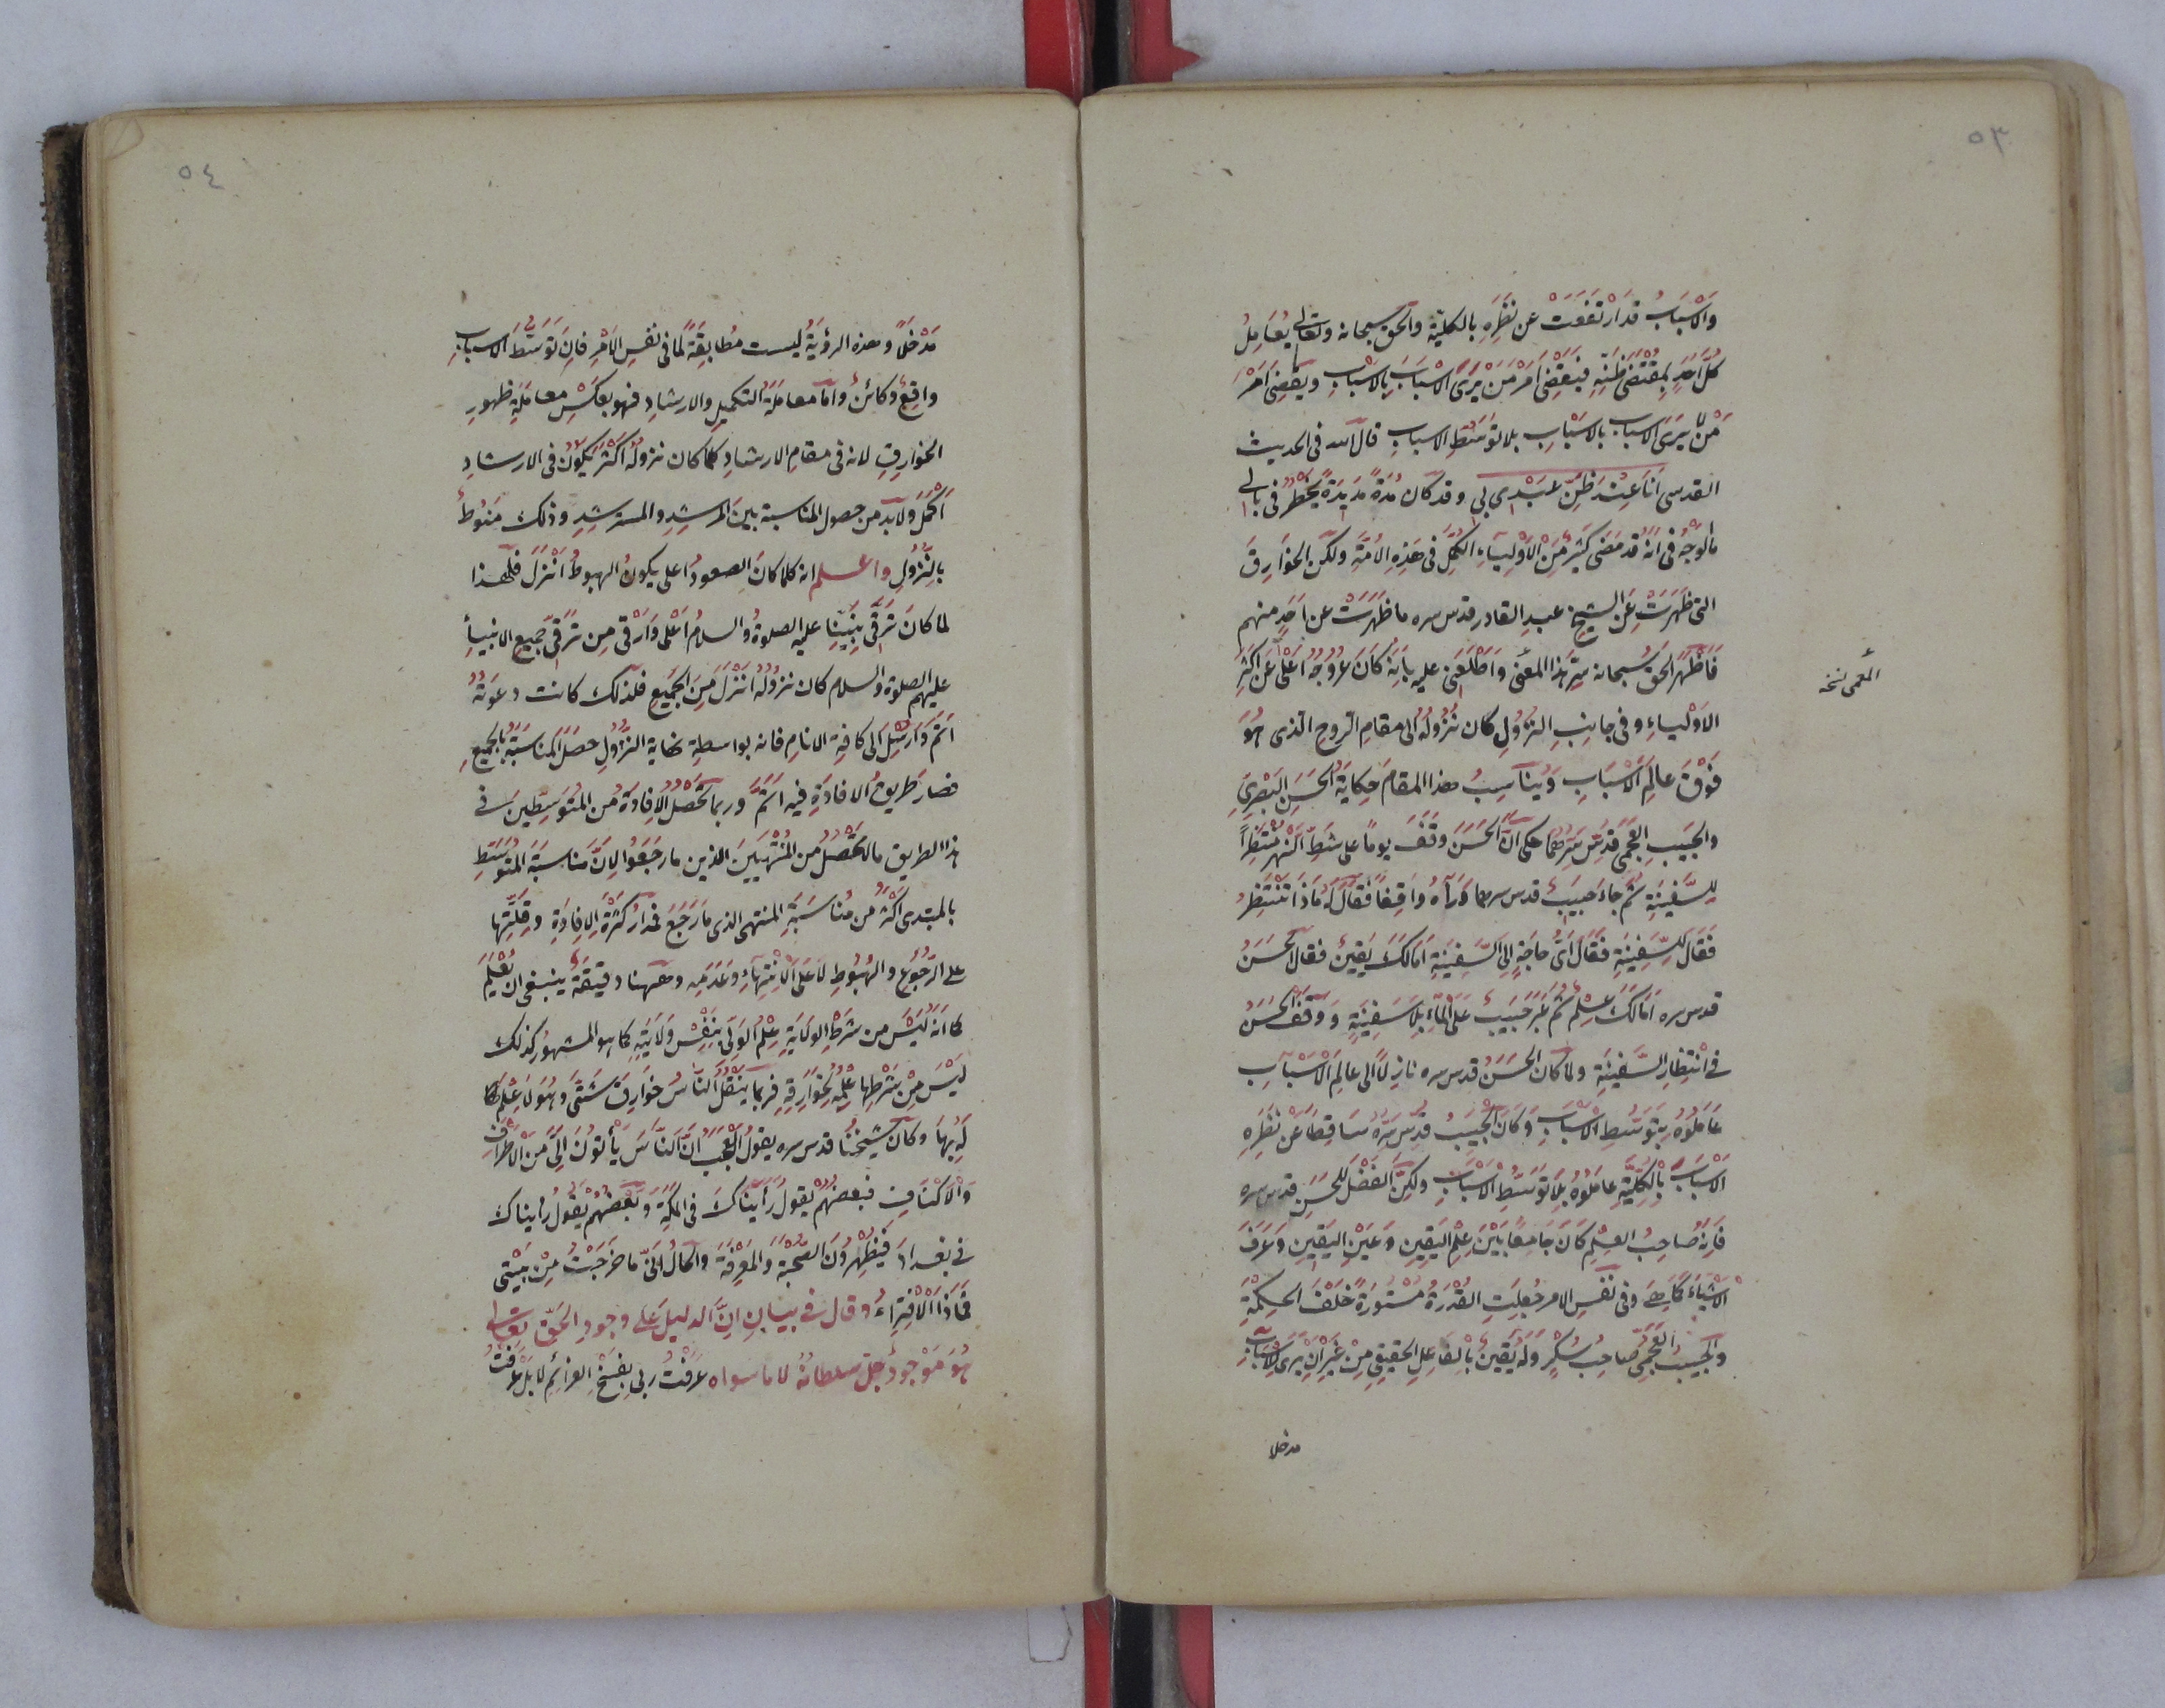 ٥٣
والاسبابُ قد ارتفعت عن نظره بالكلية والحق سبحانه وتعالى يعامل
كلَّ احدٍ بمقتضى ظنّه فيقضى امرَ من يرى الاسباب بالاسباب ويقضى امر
من لا يرى الاسباب بلا توسط الاسباب قال الله فى الحديث
القدسى انا عند ظن عبدى بى وقد كان مدة مديدة يخطر فى بالى
ما الوجه فى انه قد مضى كثير من الاولياء الكمل فى هذه الامة ولكن الخوارق
التى ظهرت عن الشيخ عبد القادر قدس سره ما ظهرت عن احد منهم
فاظهر الحق سبحانه سر هذا المعنى واطلعنى عليه بانه كان عروجه اعلى عن اكثر
المعمى نسخه
الاولياء وفى جانب النزول كان نزوله الى مقام الروح الذى هو
فوق عالم الاسباب ويناسب هذا المقام حكاية الحسن البصرى
والحبيب العجمى قدس سرهما حكى ان الحسن وقف يوما على شط النهر منتظرا
للسفينة ثم جاء حبيب قدس سرهما ورآه واقفا فقال له ماذا تنتظر
فقال للسفينة فقال اى حاجة الى السفينة اما لك يقين فقال الحسن
قدس سره اما لك علم ثم عبر حبيب على الماء بلا سفينة ووقف الحسن
فى انتظار السفينة ولما كان الحسن قدس سره نازلا الى عالم الاسباب
عاملوه بتوسط الاسباب وكان الحبيب قدس سره ساقطا عن نظره
الاسباب بالكلية عاملوه بلا توسط الاسباب ولكن الفضل للحسن قدس سره
فانه صاحب العلم كان جامعا بين علم اليقين وعين اليقين وعرف
الاشياء كما هى وفى نفس الامر جعلت القدرة مستورة خلف الحكمة
والحبيب العجمى صاحب سكر وله يقين بالفاعل الحقيقى من غير ان يرى للاسباب
مدخلا
٥٤
مدخلا وهذه الرؤية ليست مطابقة لما فى نفس الامر فان توسط الاسباب
واقع وكائن واما معاملة التكميل والارشاد فهو بعكس معاملة ظهور
الخوارق لانه فى مقام الارشاد كلما كان نزوله اكثر يكون فى الارشاد
اكمل ولا بد من حصول المناسبة بين المرشد والمسترشد وذلك منوط
بالنزول واعلم انه كلما كان الصعود اعلى يكون الهبوط انزل فلهذا
لما كان ترقى نبينا عليه الصلوة والسلام اعلى وارقى من ترقى جميع الانبياء
عليهم الصلوة والسلام كان نزوله انزل من الجميع فلذلك كانت دعوته
اتم وارسل الى كافة الانام فانه بواسطة نهاية النزول حصل المناسبة بالجميع
فصار طريق الافادة فيه اتم وربما تحصل الافادة من المتوسطين فى
هذا الطريق ما لا تحصل من المنتهيين الذين ما رجعوا لان مناسبة المتوسط
بالمبتدى اكثر من مناسبة المنتهى الذى ما رجع فمدار كثرة الافادة وقلتها
على الرجوع والهبوط لا على الانتهاء وعدمه وههنا دقيقة ينبغى ان يعلم
كما انه ليس من شرط الولاية علم الولى بنفس ولايته كما هو المشهور كذلك
ليس من شرطها علمه بخوارقه فربما ينقل الناس خوارق شتى وهو لا علم له
بها وكان شيخنا قدس سره يقول العجب ان الناس يأتون الى من الاطراف
والاكناف فبعضهم يقول رأيناك فى المكة وبعضهم يقول رأيناك
فى بغداد فيظهرون الصحبة والمعرفة والحال انى ما خرجت من بيتى
فماذا الافتراء وقال فى بيان ان الدليل على وجود الحق تعالى
هو موجود جل سلطانه لا ما سواه عرفت ربى بفسخ العزائم لا بل عرفت